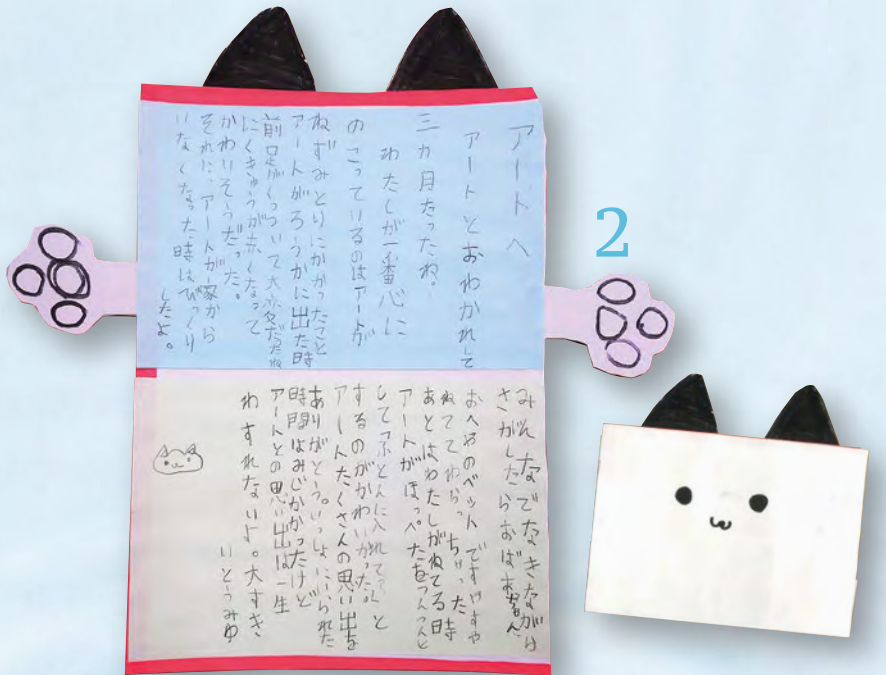 アートへ
アートとおわかれして
三カ月たったね。
わたしが一番心に
のこっているのはアートが
ねずみとりにかかったこと
アートがろうかに出た時
前足がくっついて大変だったね
にくきゅうが赤くなって
かわいそうだった。
それに、アートが家から
いなくなった時はびっくり
したよ。
みんなでなきながら
さがしたらおばあちゃん
おへやのベットですやすや
ねててわらっちゃった
あとはわたしがねてる時
アートがほっぺたをつんつんと
して「ふとんに入れて?」と
するのがかわいかった。
アートたくさんの思い出を
ありがとう。いっしょにいられた
時間はみじかかったけど
アートとの思い出は一生
わすれないよ。大すき。
いとうみゆ
2